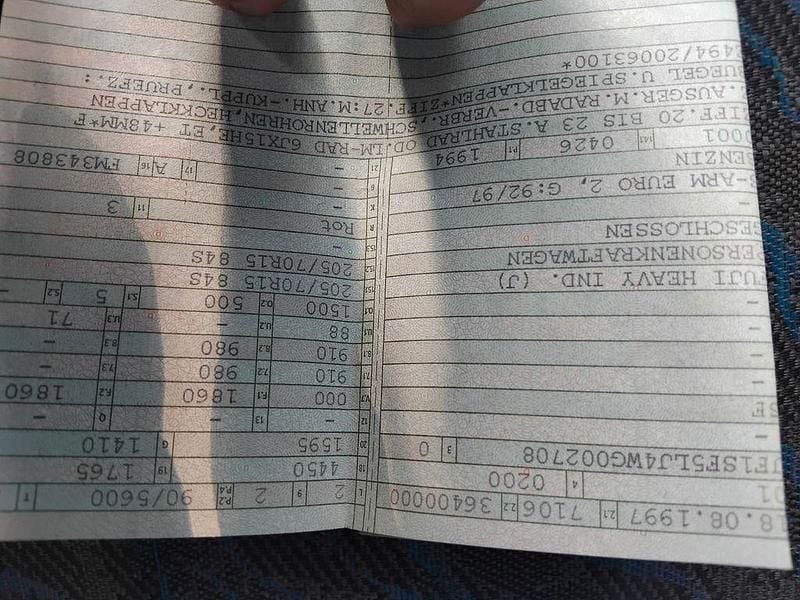 18.08.1997 2.1 7106 2.2 36400000
01 4 0200
JF1SF5LJ4WG002708 3 0
-
SF
-
-
-
-
-
FUJI HEAVY IND. (J)
PERSONENKRAFTWAGEN
GESCHLOSSEN
S-ARM EURO 2, G:92/97
BENZIN
0001 14.1 0426 P.1 1994
L 2 9 2 P.2 P.4 90/5600 T
18 4450 19 1765
20 1595 G 1410
12 - 13 - Q -
V.7 000 F.1 1860 F.2 1860
7.1 910 7.2 980 7.3 -
8.1 910 8.2 980 8.3 -
U.1 88 U.2 - U.3 71
O.1 1500 O.2 500 S.1 5 S.2 -
15.1 205/70R15 84S
15.2 205/70R15 84S
15.3 -
R Rot 11 3
K -
6 - 17 16 A FM343808
21 -
ZIFF.20 BIS 23 A.STAHLRAD OD.LM-RAD 6JX15HE,ET +48MM*F
.AUSGER.M.RADABD.-VERBR.,SCHWELLENROHREN,HECKKLAPPEN
BUEGEL U.SPIEGELKLAPPEN*ZIFF.27:M.ANH.-KUPPL.,PRUEFZ.:
494/20063100*